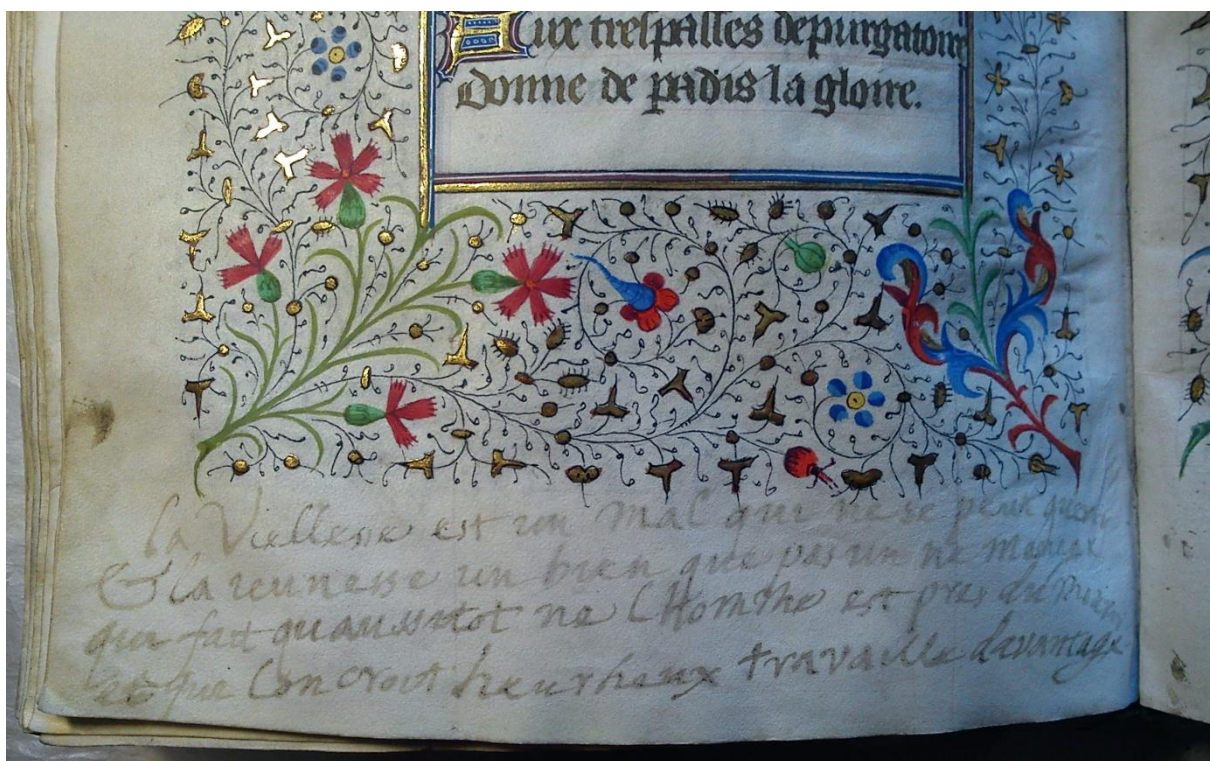 Aux trespasses de purgatoire
Donne de padis la gloire.
la Viellesse est un mal qui ne se peut
& la ieunesse un bien que pas un ne
qui fait quaussitot ne lHomme est pres du
et que lon croit heurheux travaille davantage